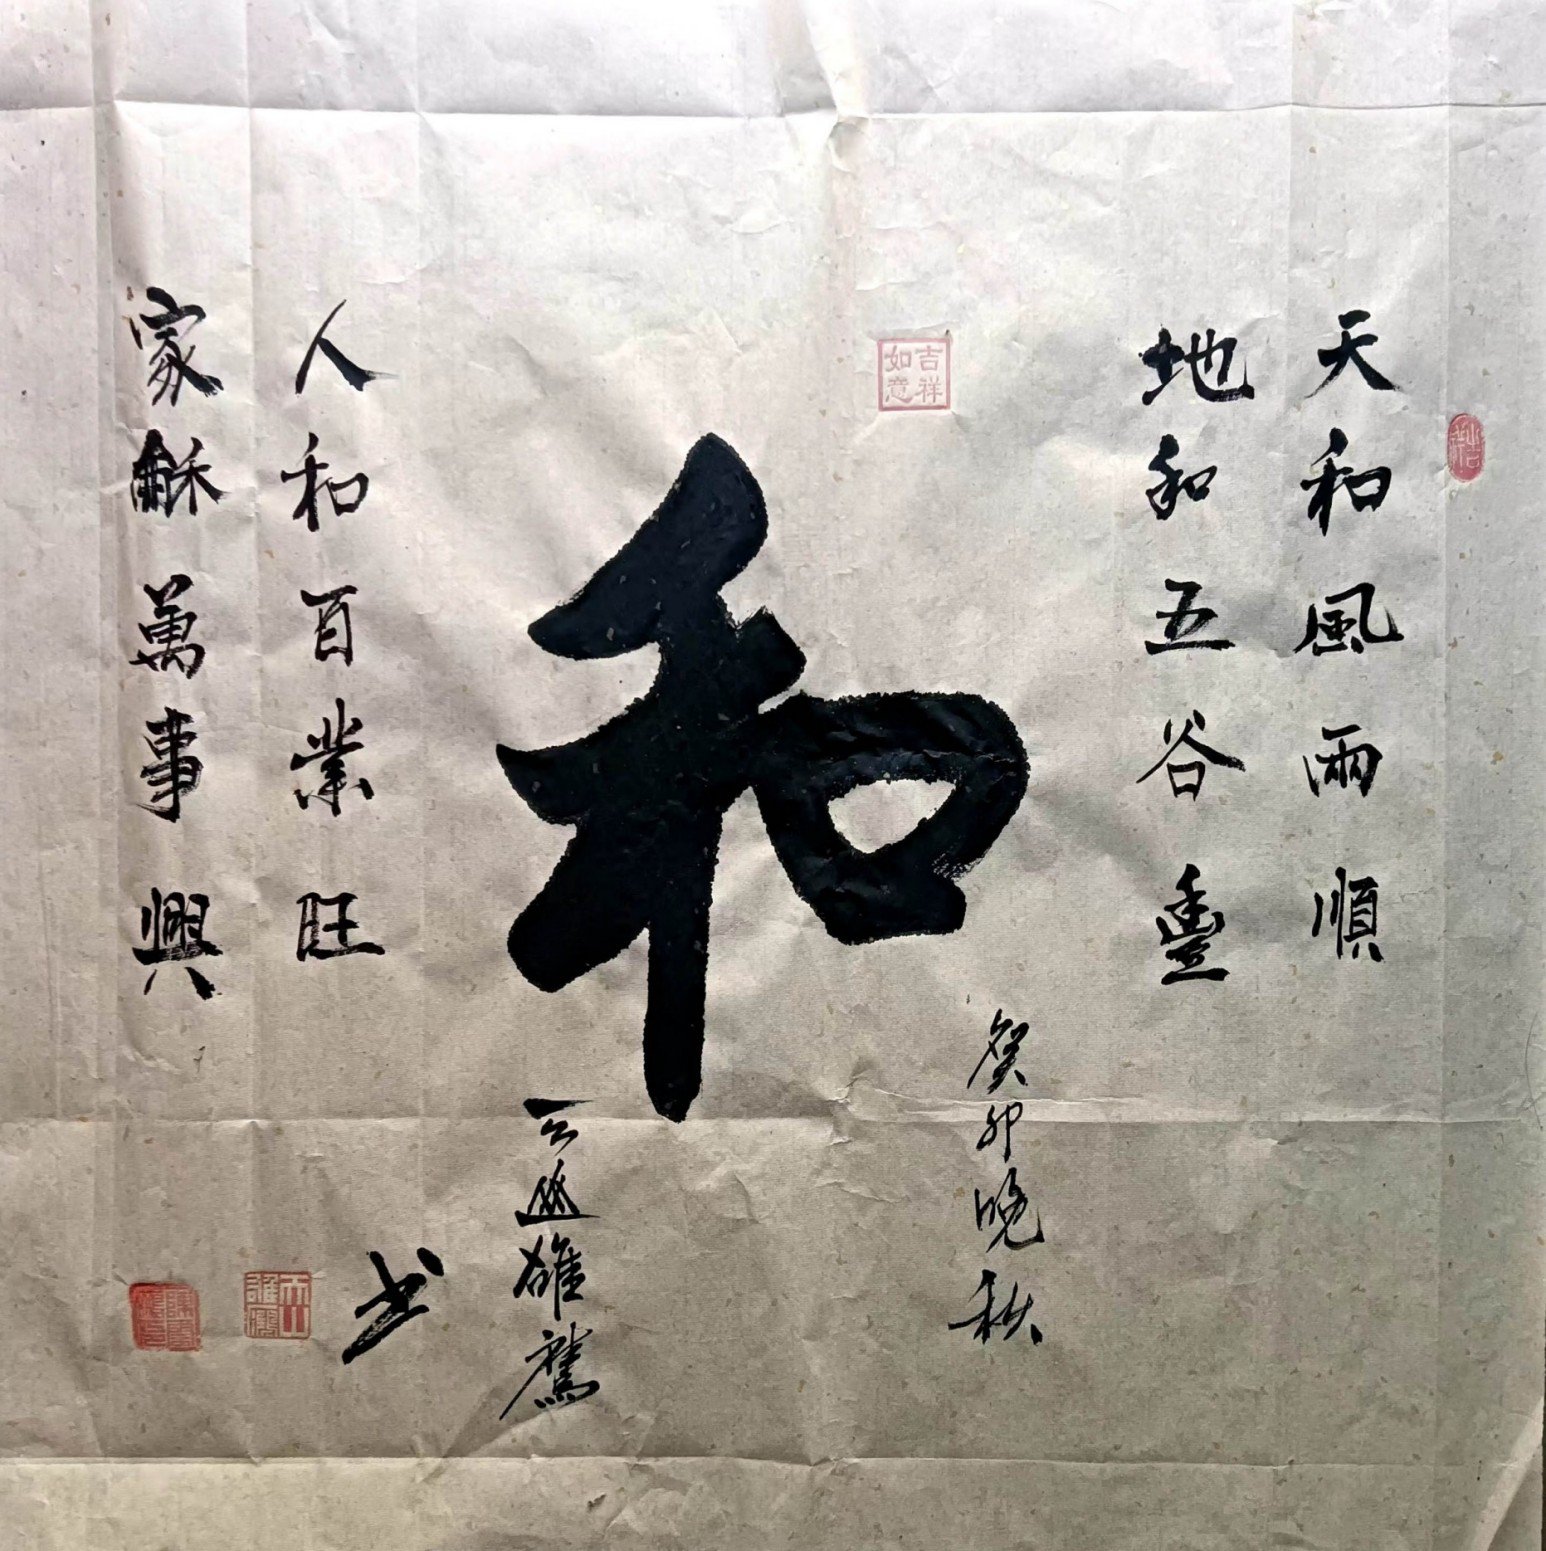 天和風雨順
地和五谷豐
吉祥
如意
和
癸卯晚秋
雄鷹
書
人和百業旺
家龢萬事興
天山
雄鷹